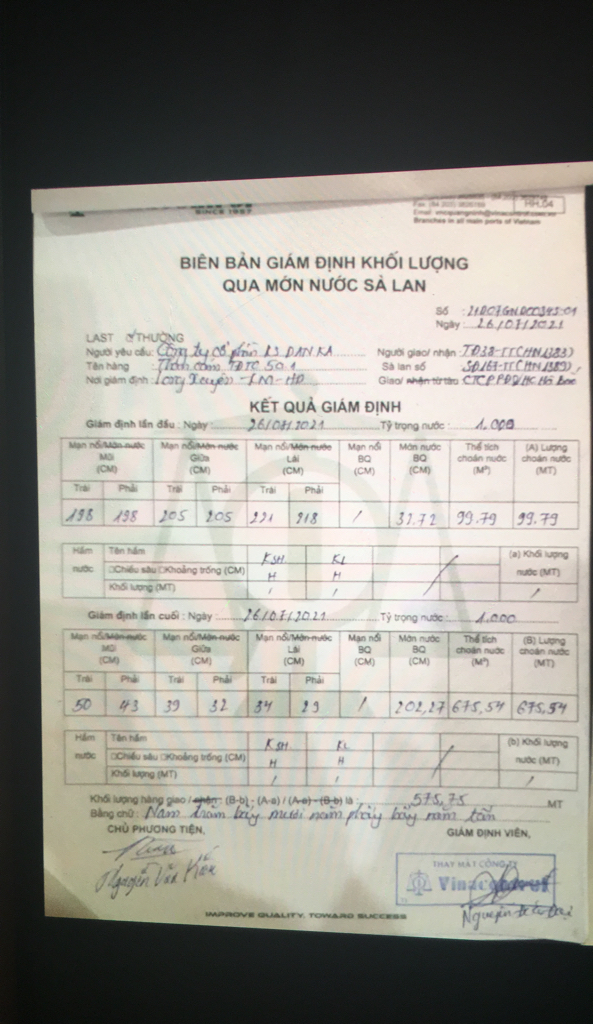 SINCE 1957
HH.04
Branches in all main ports of Vietnam
BIÊN BẢN GIÁM ĐỊNH KHỐI LƯỢNG
QUA MỚN NƯỚC SÀ LAN
Số :
Ngày : 26/07/2021
LAST THƯỜNG
Người yêu cầu: Công ty cổ phần DANKA Người giao/ nhận :
Tên hàng Than cám Sà lan số
Nơi giám định : Giao/ nhận từ tàu
KẾT QUẢ GIÁM ĐỊNH
Giám định lần đầu : Ngày : 26/07/2021 Tỷ trọng nước : 1,000
Mạn nổi/Món nước Mũi (CM) Mạn nổi/Món nước Giữa (CM) Mạn nổi/Món nước Lái (CM) Mạn nổi BQ (CM) Món nước BQ (CM) Thể tích choán nước (M³) (A) Lượng choán nước (MT)
Trái Phải Trái Phải Trái Phải
198 198 205 205 221 218 / 99.79 99.79
Hầm nước Tên hầm KSH KL (a) Khối lượng nước (MT)
□Chiều sâu □Khoảng trống (CM) H H
Khối lượng (MT) / / /
Giám định lần cuối : Ngày : 26/07/2021 Tỷ trọng nước : 1,000
Mạn nổi/Món nước Mũi (CM) Mạn nổi/Món nước Giữa (CM) Mạn nổi/Món nước Lái (CM) Mạn nổi BQ (CM) Món nước BQ (CM) Thể tích choán nước (M³) (B) Lượng choán nước (MT)
Trái Phải Trái Phải Trái Phải
50 43 39 32 34 29 / 202,27 675,54 675,54
Hầm nước Tên hầm KSH KL (b) Khối lượng nước (MT)
□Chiều sâu □Khoảng trống (CM) H H
Khối lượng (MT) / / /
Khối lượng hàng giao / nhận : (B-b) - (A-a) / (A-a) - (B-b) là : 575,75 MT
Bằng chữ : Năm trăm bảy mươi năm phảy bảy năm tấn
CHỦ PHƯƠNG TIỆN, GIÁM ĐỊNH VIÊN,
THAY MẶT CÔNG TY
Vinacontrol
Nguyễn Văn
Nguyễn
IMPROVE QUALITY, TOWARD SUCCESS